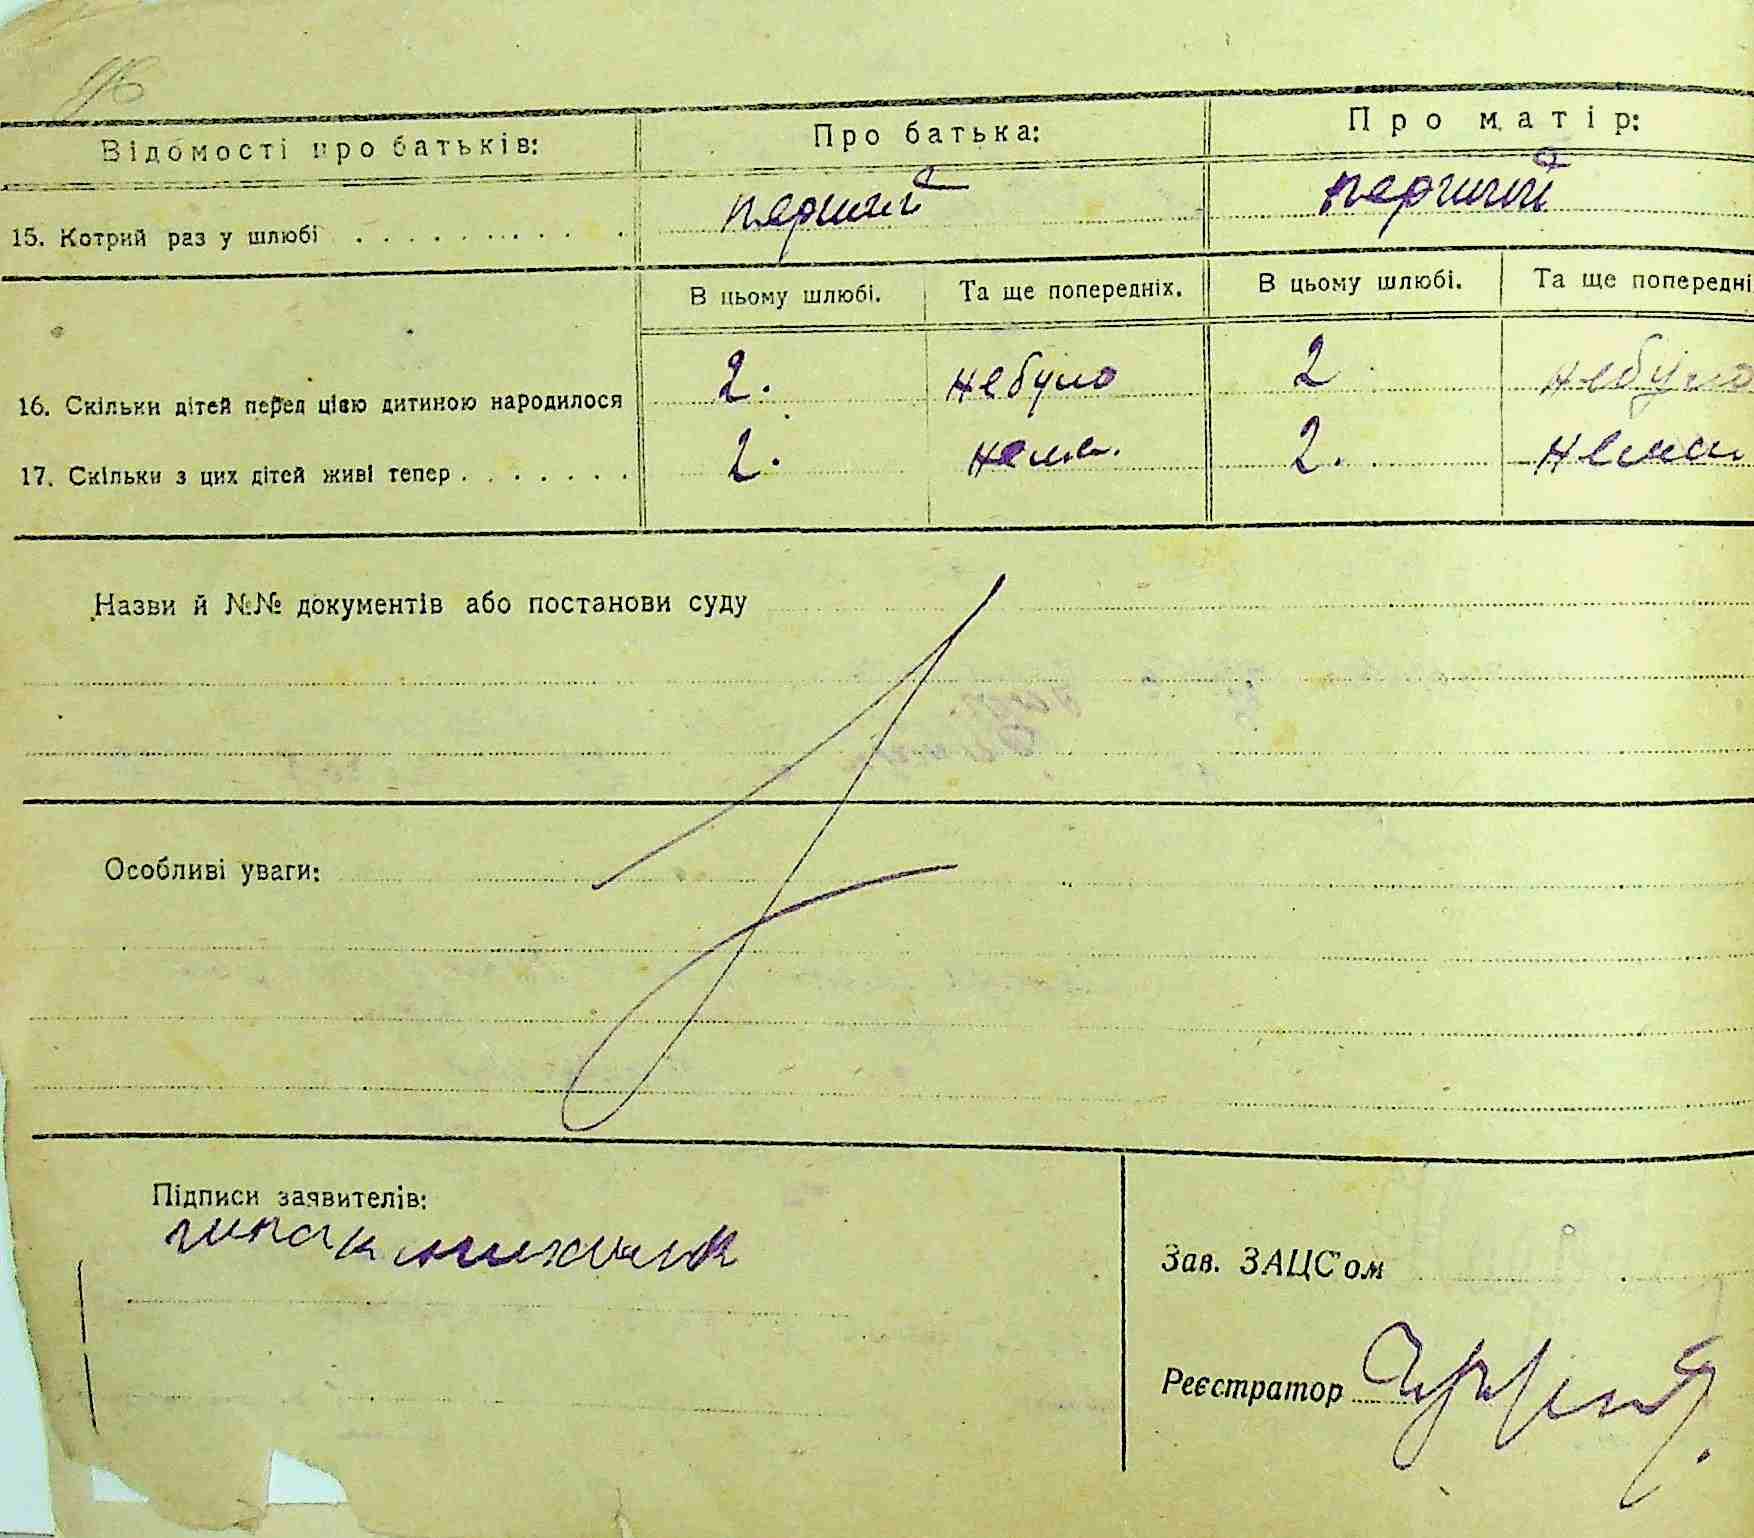 96
Відомості про батьків: Про батька: Про матір:
15. Котрий раз у шлюбі . . . . . . . . . . . перший перший
В цьому шлюбі. Та ще попередніх. В цьому шлюбі. Та ще попередні
16. Скільки дітей перед цією дитиною народилося 2. небуло 2 небуло
17. Скільки з цих дітей живі тепер . . . . . . . 2. нема. 2. нема
Назви й №№ документів або постанови суду
Особливі уваги:
Підписи заявителів:
Зав. ЗАЦС'ом
Реєстратор